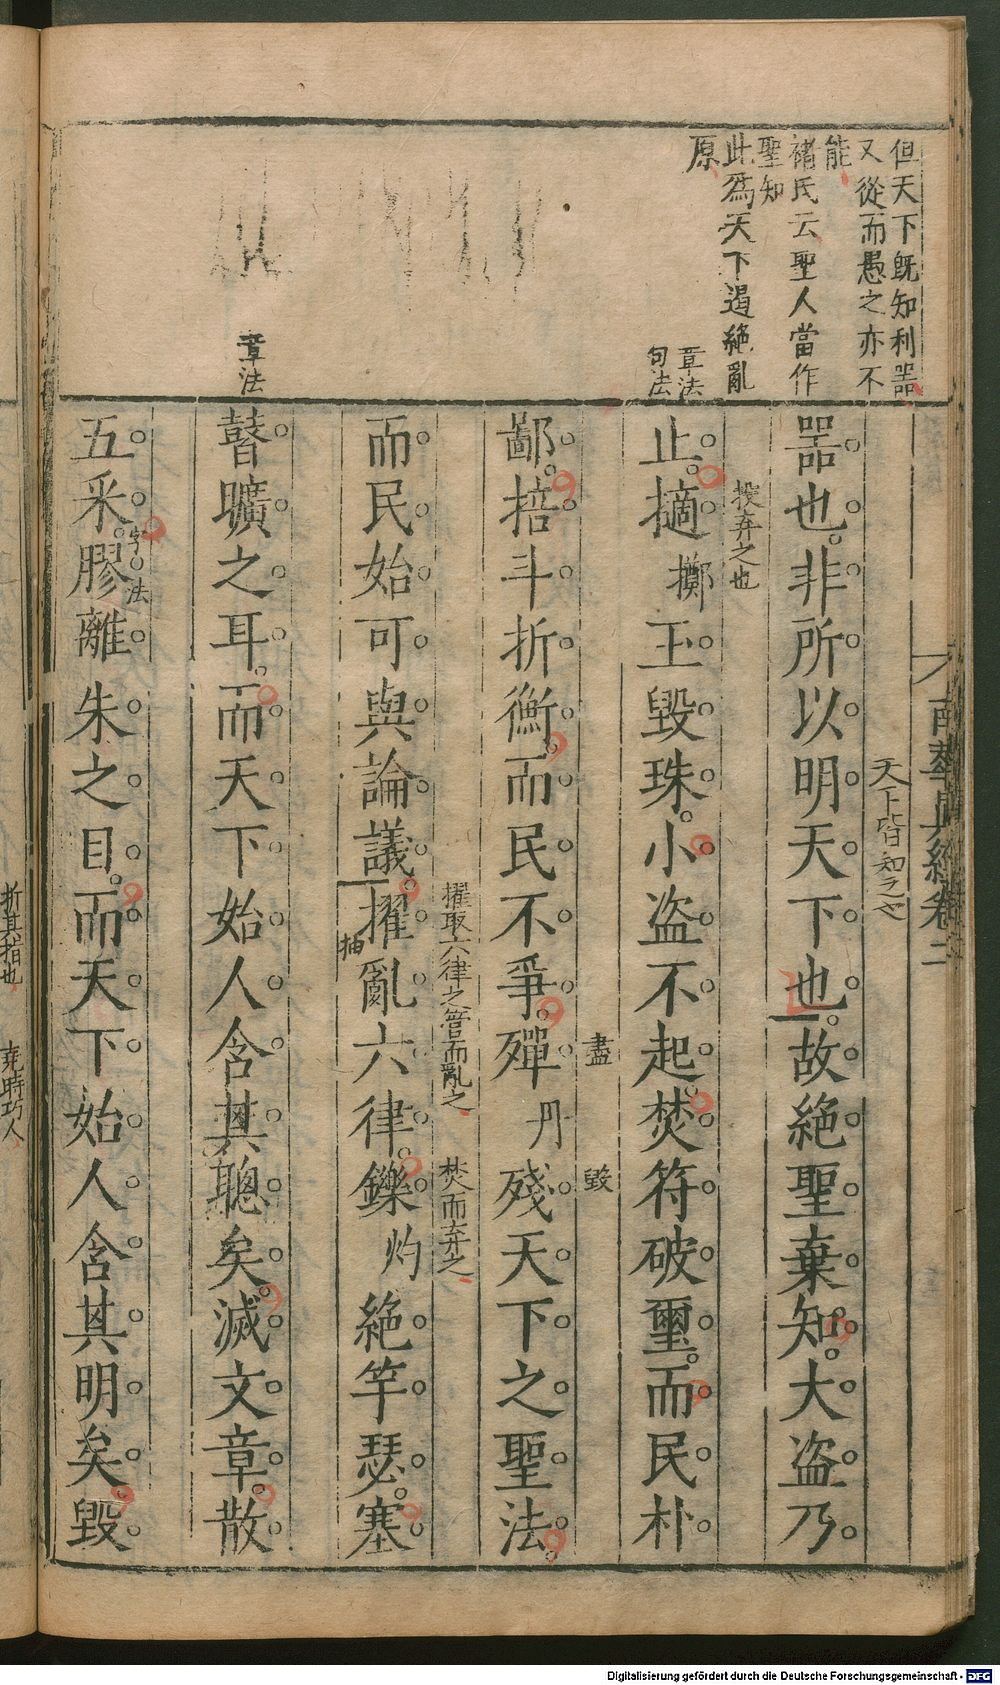 但天下既知利器
又從而愚之亦不
能
褚氏云聖人當作
聖知
此爲天下遏絶亂
原
章法
句法
章法
南華眞經卷二
天下皆知之也
器也非所以明天下也故絶聖棄知大盗乃
投弃之也
止擿擲玉毀珠小盗不起焚符破璽而民朴
盡
毀
鄙掊斗折衡而民不爭殫丹殘天下之聖法
擢取六律之管而亂之
焚而弃之
而民始可與論議擢亂六律鑠灼絶竽瑟塞
抽
瞽曠之耳而天下始人含其聰矣滅文章散
五采膠離朱之目而天下始人含其明矣毀
字法
折其指也
堯時巧人
Digitalisierung gefördert durch die Deutsche Forschungsgemeinschaft - DFG